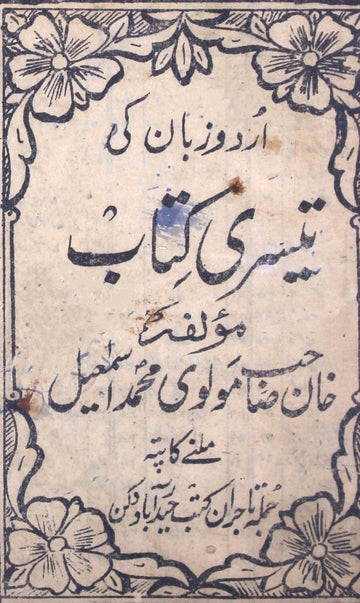 اُردو زبان کی
تیسری کتاب
مؤلفہ
خان صاحب مولوی محمد اسمعیل
ملنے کا پتہ
جملہ تاجران کتب حیدرآباد دکن